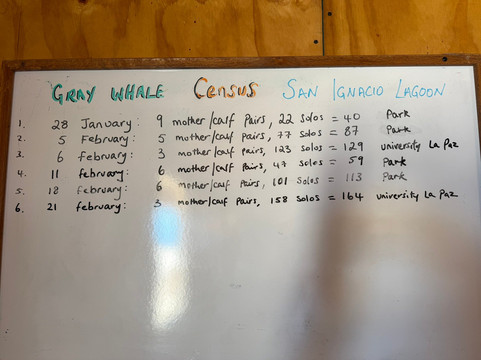 GRAY WHALE CENSUS SAN IGNACIO LAGOON
1. 28 January: 9 mother/calf Pairs, 22 Solos = 40 Park
2. 5 February: 5 mother/calf Pairs, 77 Solos = 87 Park
3. 6 february: 3 mother/calf Pairs, 123 solos = 129 university La Paz
4. 11 february: 6 mother/calf Pairs, 47 soles = 59 Park
5. 18 february: 6 mother/calf Pairs, 101 Soles = 113 Park
6. 21 february: 3 mother/calf Pairs, 158 solos = 164 university La Paz